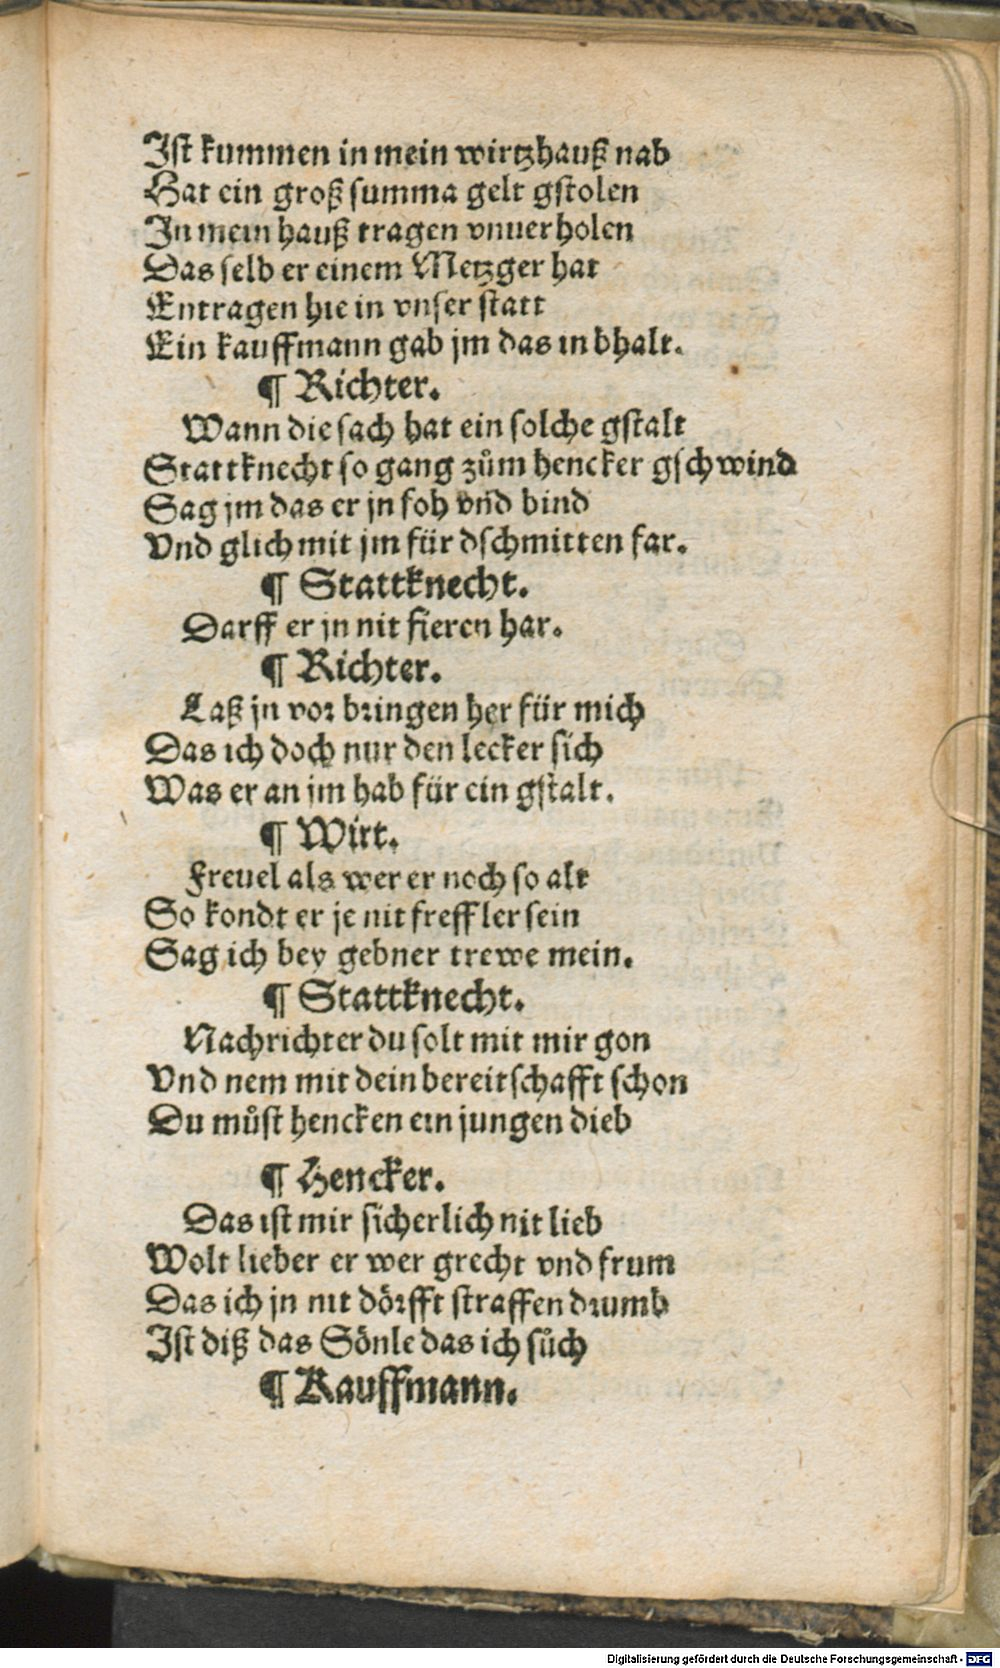 Ist kummen in mein wirtzhauß nab
Hat ein groß summa gelt gstolen
In mein hauß tragen vnuerholen
Das selb er einem Metzger hat
Entragen hie in vnser statt
Ein kauffmann gab jm das in bhalt.
¶ Richter.
Wann die sach hat ein solche gstalt
Stattknecht so gang zům hencker gschwind
Sag jm das er jn foh vnd bind
Vnd glich mit jm für dschmitten far.
¶ Stattknecht.
Darff er jn nit fieren har.
¶ Richter.
Laß jn vor bringen her für mich
Das ich doch nur den lecker sich
Was er an jm hab für ein gstalt.
¶ Wirt.
Freuel als wer er noch so alt
So kondt er je nit freffler sein
Sag ich bey gebner trewe mein.
¶ Stattknecht.
Nachrichter du solt mit mir gon
Vnd nem mit dein bereitschafft schon
Du můst hencken ein jungen dieb
¶ Hencker.
Das ist mir sicherlich nit lieb
Wolt lieber er wer grecht vnd frum
Das ich jn nit dörfft straffen drumb
Ist diß das Sönle das ich sůch
¶ Kauffmann.
Digitalisierung gefördert durch die Deutsche Forschungsgemeinschaft - DFG